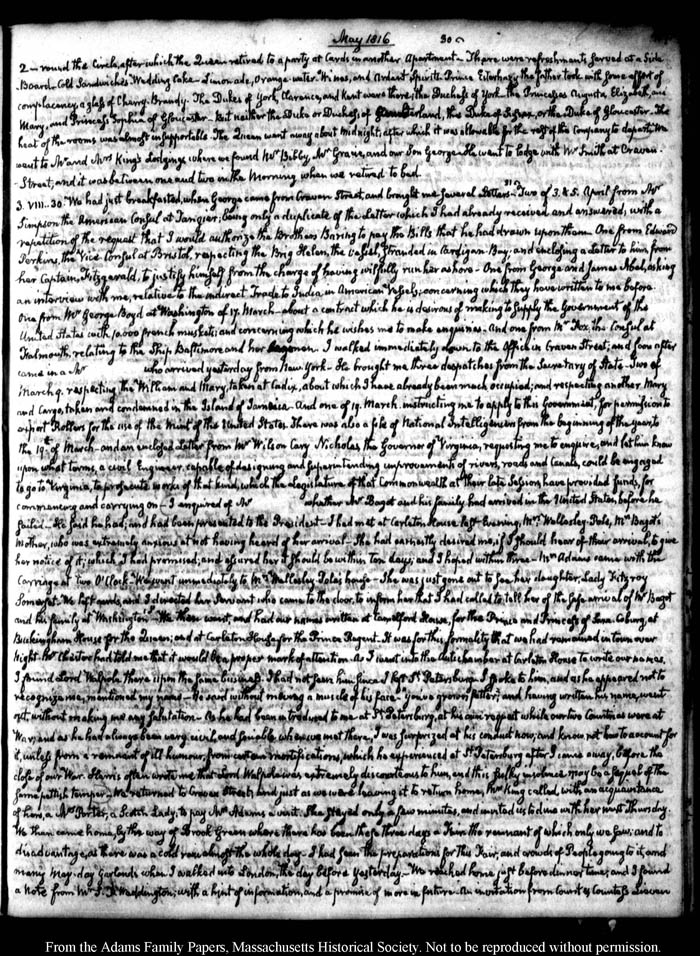 May 1816
30
2— round the Circle, after which the Queen retired to a party at Cards in another Apartment— There were refreshments served at a Side
Board— Cold Sandwiches Wedding Cake— Limonade, Orange-water Wines, and Ardent Spirits. Prince Esterhazy the father took with some affect of
complacency, a glass of Cherry-Brandy. The Dukes of York, Clarence, and Kent were there; the Duchess of York— the Princesses Augusta, Elizabeth, and
Mary, and Princess Sophia of Gloucester— but neither the Duke or Duchess, of Cumberland, the Duke of Sussex, or the Duke of Gloucester— The
heat of the rooms was almost insupportable. The Queen went away about midnight; after which it was allowable for the rest of the Company to depart. We
went to Mr and Mrs King's Lodgings where we found Mr Bibby, Mr Grave, and our Son George— He went to lodge with Mr Smith at Craven-
Street; and it was between one and two in the Morning when we retired to bed.
3. VIII—30. We had just breakfasted, when George came from Craven Street, and brought me several Letters— Two of 3. & 5. April from Mr
Simpson the American Consul at Tangier; being only a duplicate of the Letter which I had already received and answered; with a
repetition of the request that I would authorize the Brothers Baring to pay the Bills that he had drawn upon them. One from Edward
Perkins, the Vice Consul at Bristol, respecting the Brig Helen, the Vessel, stranded in Cardigan Bay: and enclosing a Letter to him from
her Captain, Fitzgerald, to justify himself from the charge of having wilfully run her ashore— One from George and James Abel, asking
an interview with me, relative to the indirect Trade to India, in American Vessels; concerning which they have written to me before
One from Mr George Boyd at Washington of 17. March— about a contract which he is desirous of making to supply the Government of the
United States with 10,000 french muskets; and concerning which he wishes me to make enquiries. And one from Mr Fox, the Consul at
Falmouth, relating to the Ship Baltimore and her Seamen. I walked immediately down to the Office in Craven Street; and soon after
came in a Mr who arrived yesterday from New-York— He brought me three despatches from the Secretary of State— Two of
March 9. respecting the William and Mary, taken at Cadiz, about which I have already been much occupied; and respecting another Mary
and Cargo, taken and condemned in the Island of Jamaica. And one of 19. March. instructing me to apply to this Government, for permission to
export Rollers for the use of the Mint of the United States. There was also a file of National Intelligencers from the beginning of the year, to
the 19th of March— and an enclosed Letter from Mr Wilson Cary Nicholas, the Governor of Virginia, requesting me to enquire, and let him know
upon what terms, a civil Engineer, capable of designing and superintending improvements of rivers, roads and Canals, could be engaged
to go to Virginia, to prosecute works of that kind, which the Legislature of that Commonwealth at their late Session have provided funds, for
commencing and carrying on— I enquired of Mr whether Mr Bagot and his family had arrived in the United States, before he
sailed— He said he had; and had been presented to the President— I had met at Carleton House last Evening, Mrs Wellesley-Pole, Mrs Bagot's
mother, who was extremely anxious at not having heard of her arrival— She had earnestly desired me, if I should hear of their arrival, to give
her notice of it; which I had promised; and assured her it should be within ten days; and I hoped within three— Mrs Adams came with the
Carriage at two O'Clock. We went immediately to Mrs Wellesley Pole's house— She was just gone out to see her daughter, Lady Fitzroy
Somerset. We left cards, and I directed her servant who came to the door, to inform her that I had called to tell her of the safe arrival of Mr Bagot
and his family at Washington— We then went, and had our names written at Camelford House, for the Prince and Princess of Saxe-Coburg, at
Buckingham House for the Queen; and at Carleton House for the Prince Regent. It was for this formality that we had remained in town over
night. Mr Chester had told me that it would be a proper mark of attention. As I went into the Antichamber at Carleton House to write our names,
I found Lord Walpole there upon the same business. I had not seen him since I left St. Petersburg. I spoke to him, and as he appeared not to
recognize me, mentioned my name— He said without moving a muscle of his face— "you've grown fatter;" and having written his name, went
off, without making me any salutation— As he had been introduced to me at St. Petersburg, at his own request while our two Countries were at
War; and as he had always been very civil, and sociable when we met there, I was surprized at his conduct now, and know not how to account for
it, unless from a remnant of ill humour, from certain mortifications, which he experienced at St. Petersburg after I came away, before the
close of our War. Harris often wrote me that Lord Walpole was extremely discourteous to him, and this sulky insolence may be a sequel of the
same pettish temper— We returned to Craven Street, and just as we were leaving it to return home, Mrs King called, with an acquaintance
of hers, a Mrs Porter, a Scotch Lady, to pay Mrs Adams a visit. She stayed only a few minutes, and invited us to dine with her next Thursday.
We then came home, by the way of Brook Green where there has been these three days a Fair, the remnant of which only we saw; and to
disadvantage, as there was a cold rain almost the whole day— I had seen the preparations for this Fair, and crowds of People going to it, and
many May-day Garlands when I walked into London, the day before yesterday— We reached home just before dinner time; and I found
a Note from Mr S. R. Waddington; with a hint of information, and a promise of more in future. An invitation from Count & Countess Lieven
From the Adams Family Papers, Massachusetts Historical Society. Not to be reproduced without permission.